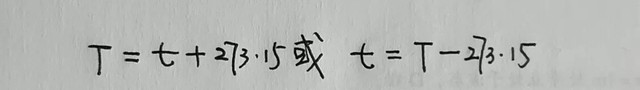 T = t + 273.15 或 t = T - 273.15